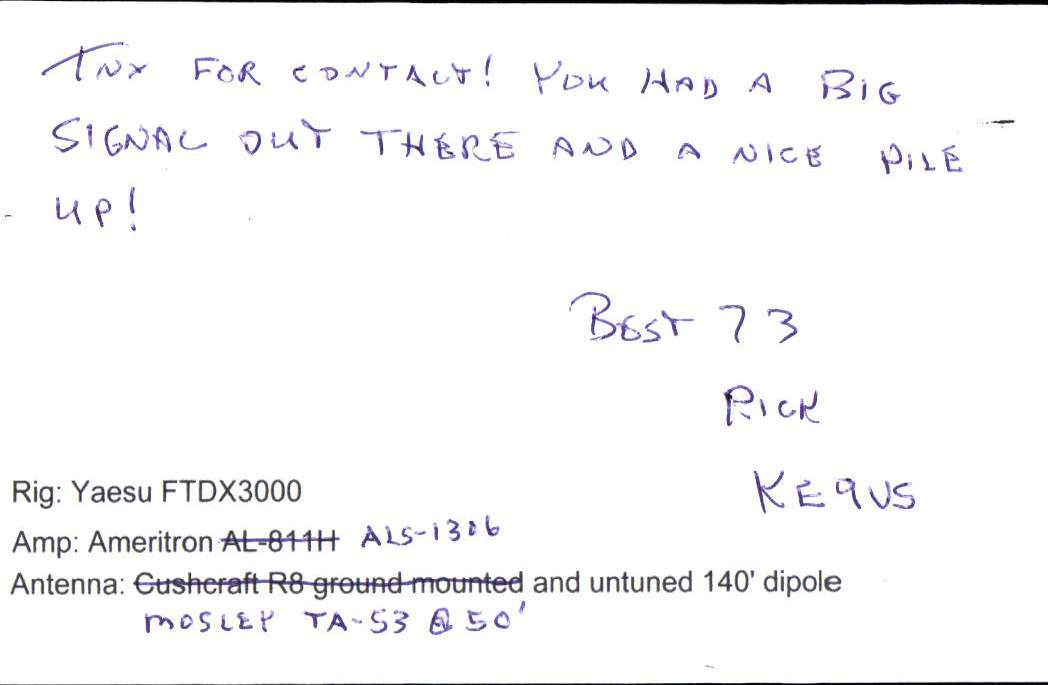 TNX FOR CONTACT! YOU HAD A BIG
SIGNAL OUT THERE AND A NICE PILE
UP!
BEST 73
RICK
KE9US
Rig: Yaesu FTDX3000
Amp: Ameritron AL-811H ALS-1306
Antenna: Cushcraft R8 ground mounted and untuned 140' dipole
MOSLEY TA-53 @ 50'